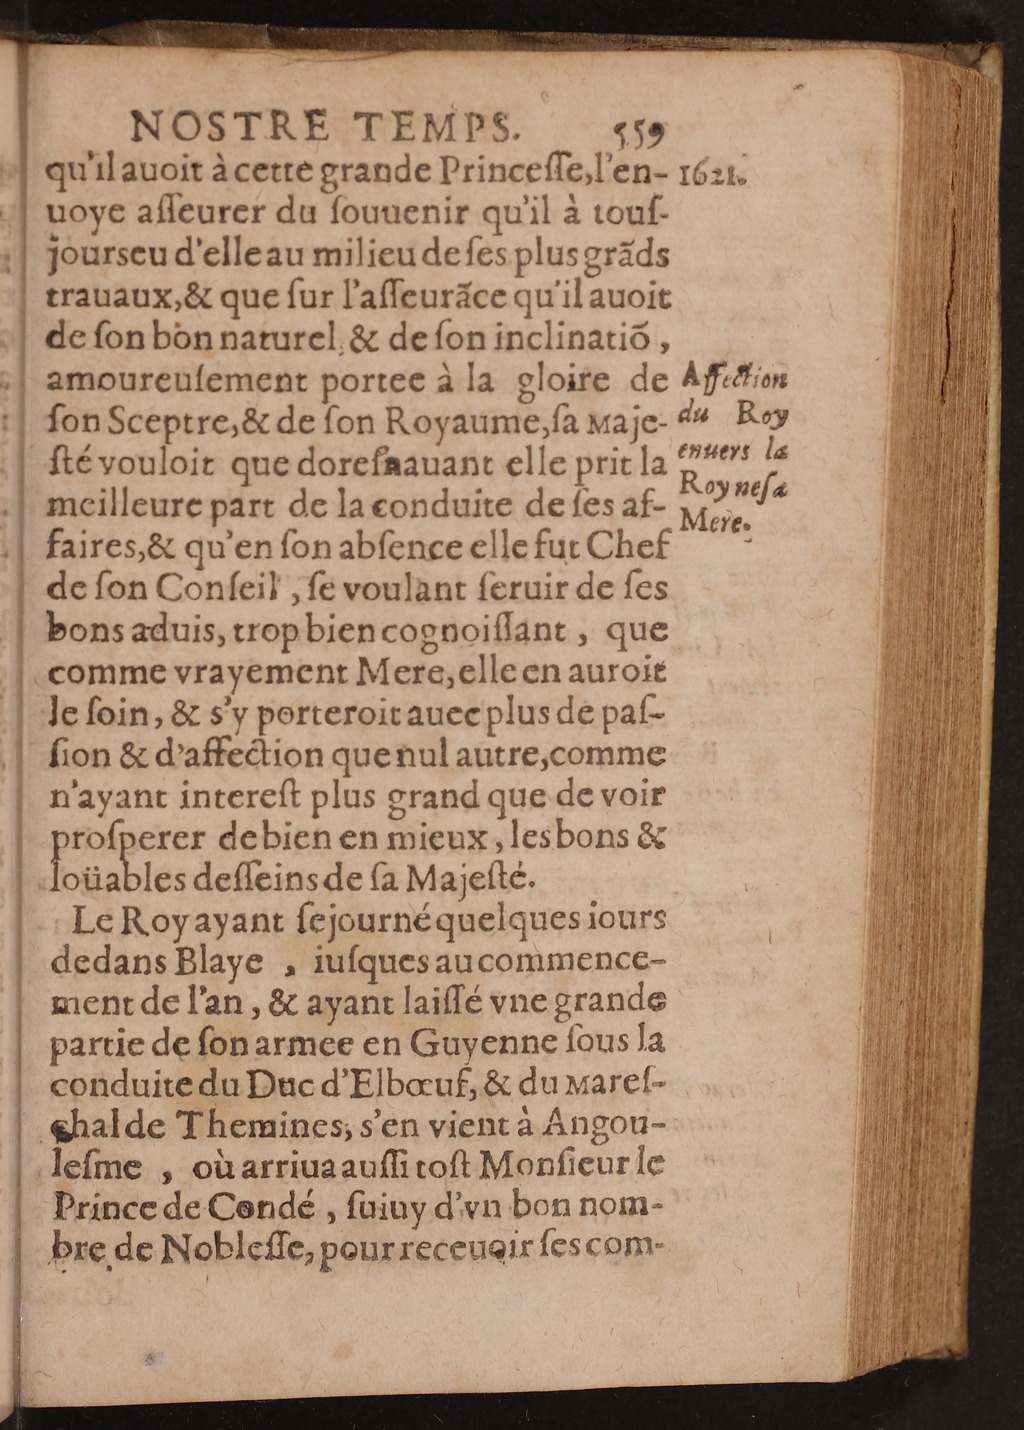 NOSTRE TEMPS. 559
qu'il auoit à cette grande Princeſſe, l'en-
1621.
uoye aſſeurer du ſouuenir qu'il à touſ-
jours eu d'elle au milieu de ſes plus grãds
trauaux, & que ſur l'aſſeurãce qu'il auoit
de ſon bon naturel, & de ſon inclinatiõ,
amoureuſement portee à la gloire de
ſon Sceptre, & de ſon Royaume, ſa Maje-
ſté vouloit que doreſnauant elle prit la
meilleure part de la conduite de ſes af-
faires, & qu'en ſon abſence elle fut Chef
Affection
du Roy
enuers la
Royne ſa
Mere.
de ſon Conſeil, ſe voulant ſeruir de ſes
bons aduis, trop bien cognoiſſant, que
comme vrayement Mere, elle en auroit
le ſoin, & s'y porteroit auec plus de paſ-
ſion & d'affection que nul autre, comme
n'ayant intereſt plus grand que de voir
proſperer de bien en mieux, les bons &
loüables deſſeins de ſa Majeſté.
Le Roy ayant ſejourné quelques iours
dedans Blaye, iuſques au commence-
ment de l'an, & ayant laiſſé vne grande
partie de ſon armee en Guyenne ſous la
conduite du Duc d'Elbœuf, & du Mareſ-
chal de Themines, s'en vient à Angou-
leſme, où arriua auſſi toſt Monſieur le
Prince de Condé, ſuiuy d'vn bon nom-
bre de Nobleſſe, pour receuoir ſes com-